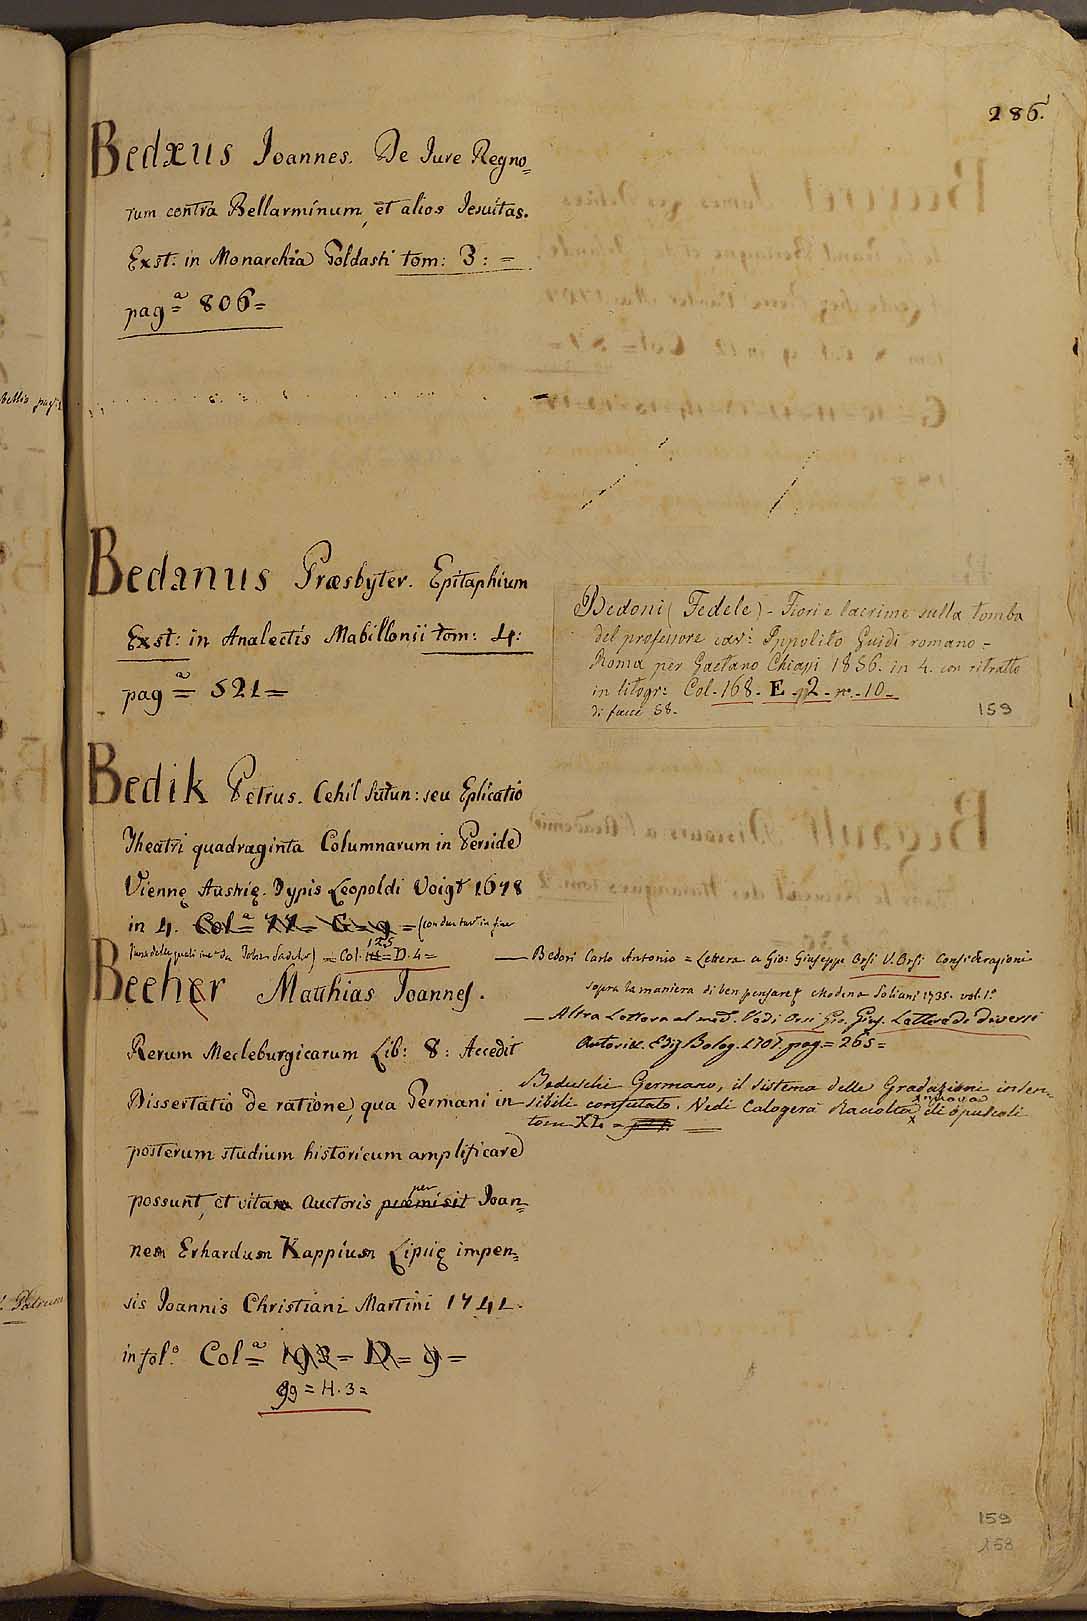 286.
Bedæus Joannes. De Jure Regno=
rum contra Bellarminum, et alios Jesuitas.
Exst: in Monarchia Goldasti tom: 3: =
pag.ª 806=
Bedanus Præsbyter. Epitaphium
Exst: in Analectis Mabillonii tom: 4:
pag.ª = 521=
Bedik Petrus. Cehil Sutun: seu Eplicatio
Theatri quadraginta Columnarum in Perside
Viennę Austrię. Typis Leopoldi Voigt 1678
in 4. Col.ª= 77= G= 9 =
= Col. 125 = D. 4=
Beeher Matthias Joannes.
Rerum Mecleburgicarum Lib: 8: Accedit
Dissertatio de ratione, qua Germani in
posterum studium historicum amplificare
possunt, et vita Auctoris præmisit per Joan=
nem Erhardum Kappium Lipiię impen=
sis Joannis Christiani Martini 1741.
in fol.º Col.ª= 192= D= 9=
99 = H. 3=
Bedoni (Fedele) - Fiori e lacrime sulla tomba
del professore cav: Ippolito Guidi romano -
Roma per Gaetano Chiassi 1856. in 4. con ritratto
in litogr: Col. 168. E - p2 - nº. 10 -
di facce 58.
159
— Bedori Carlo Antonio = Lettera a Gio: Giuseppe Orsi V. Orsi Considerazioni
sopra la maniera di ben pensare Modena Soliani 1735. vol. 1º
— Altra Lettera al med. Vedi Orsi Gio. Gius. Lettere di diversi
Autori Ediz Bolog. 1707. pag= 265=
Beduschi Germano, il sistema delle Gradazioni insen=
sibili confutato. Vedi Calogerà Raccolta nuova di opuscoli
tom XL =
159
158